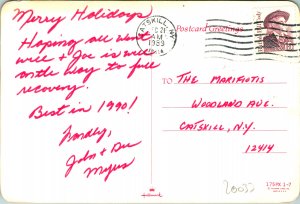 Merry Holidays
Hoping all went
well & Joe is well
on the way to full
recovery.
Best in 1990!
Fondly,
John & Dee
Myers
CATSKILL, NY
DEC 21
AM
1989
Postcard Greetings
TO THE MARIFIOTIS
WOODLAND AVE.
CATSKILL, N.Y.
12414
Hallmark
175PX 1-7